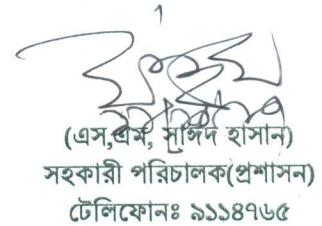 (এস,এম, সাঈদ হাসান)
সহকারী পরিচালক(প্রশাসন)
টেলিফোনঃ ৯১১৪৭৬৫